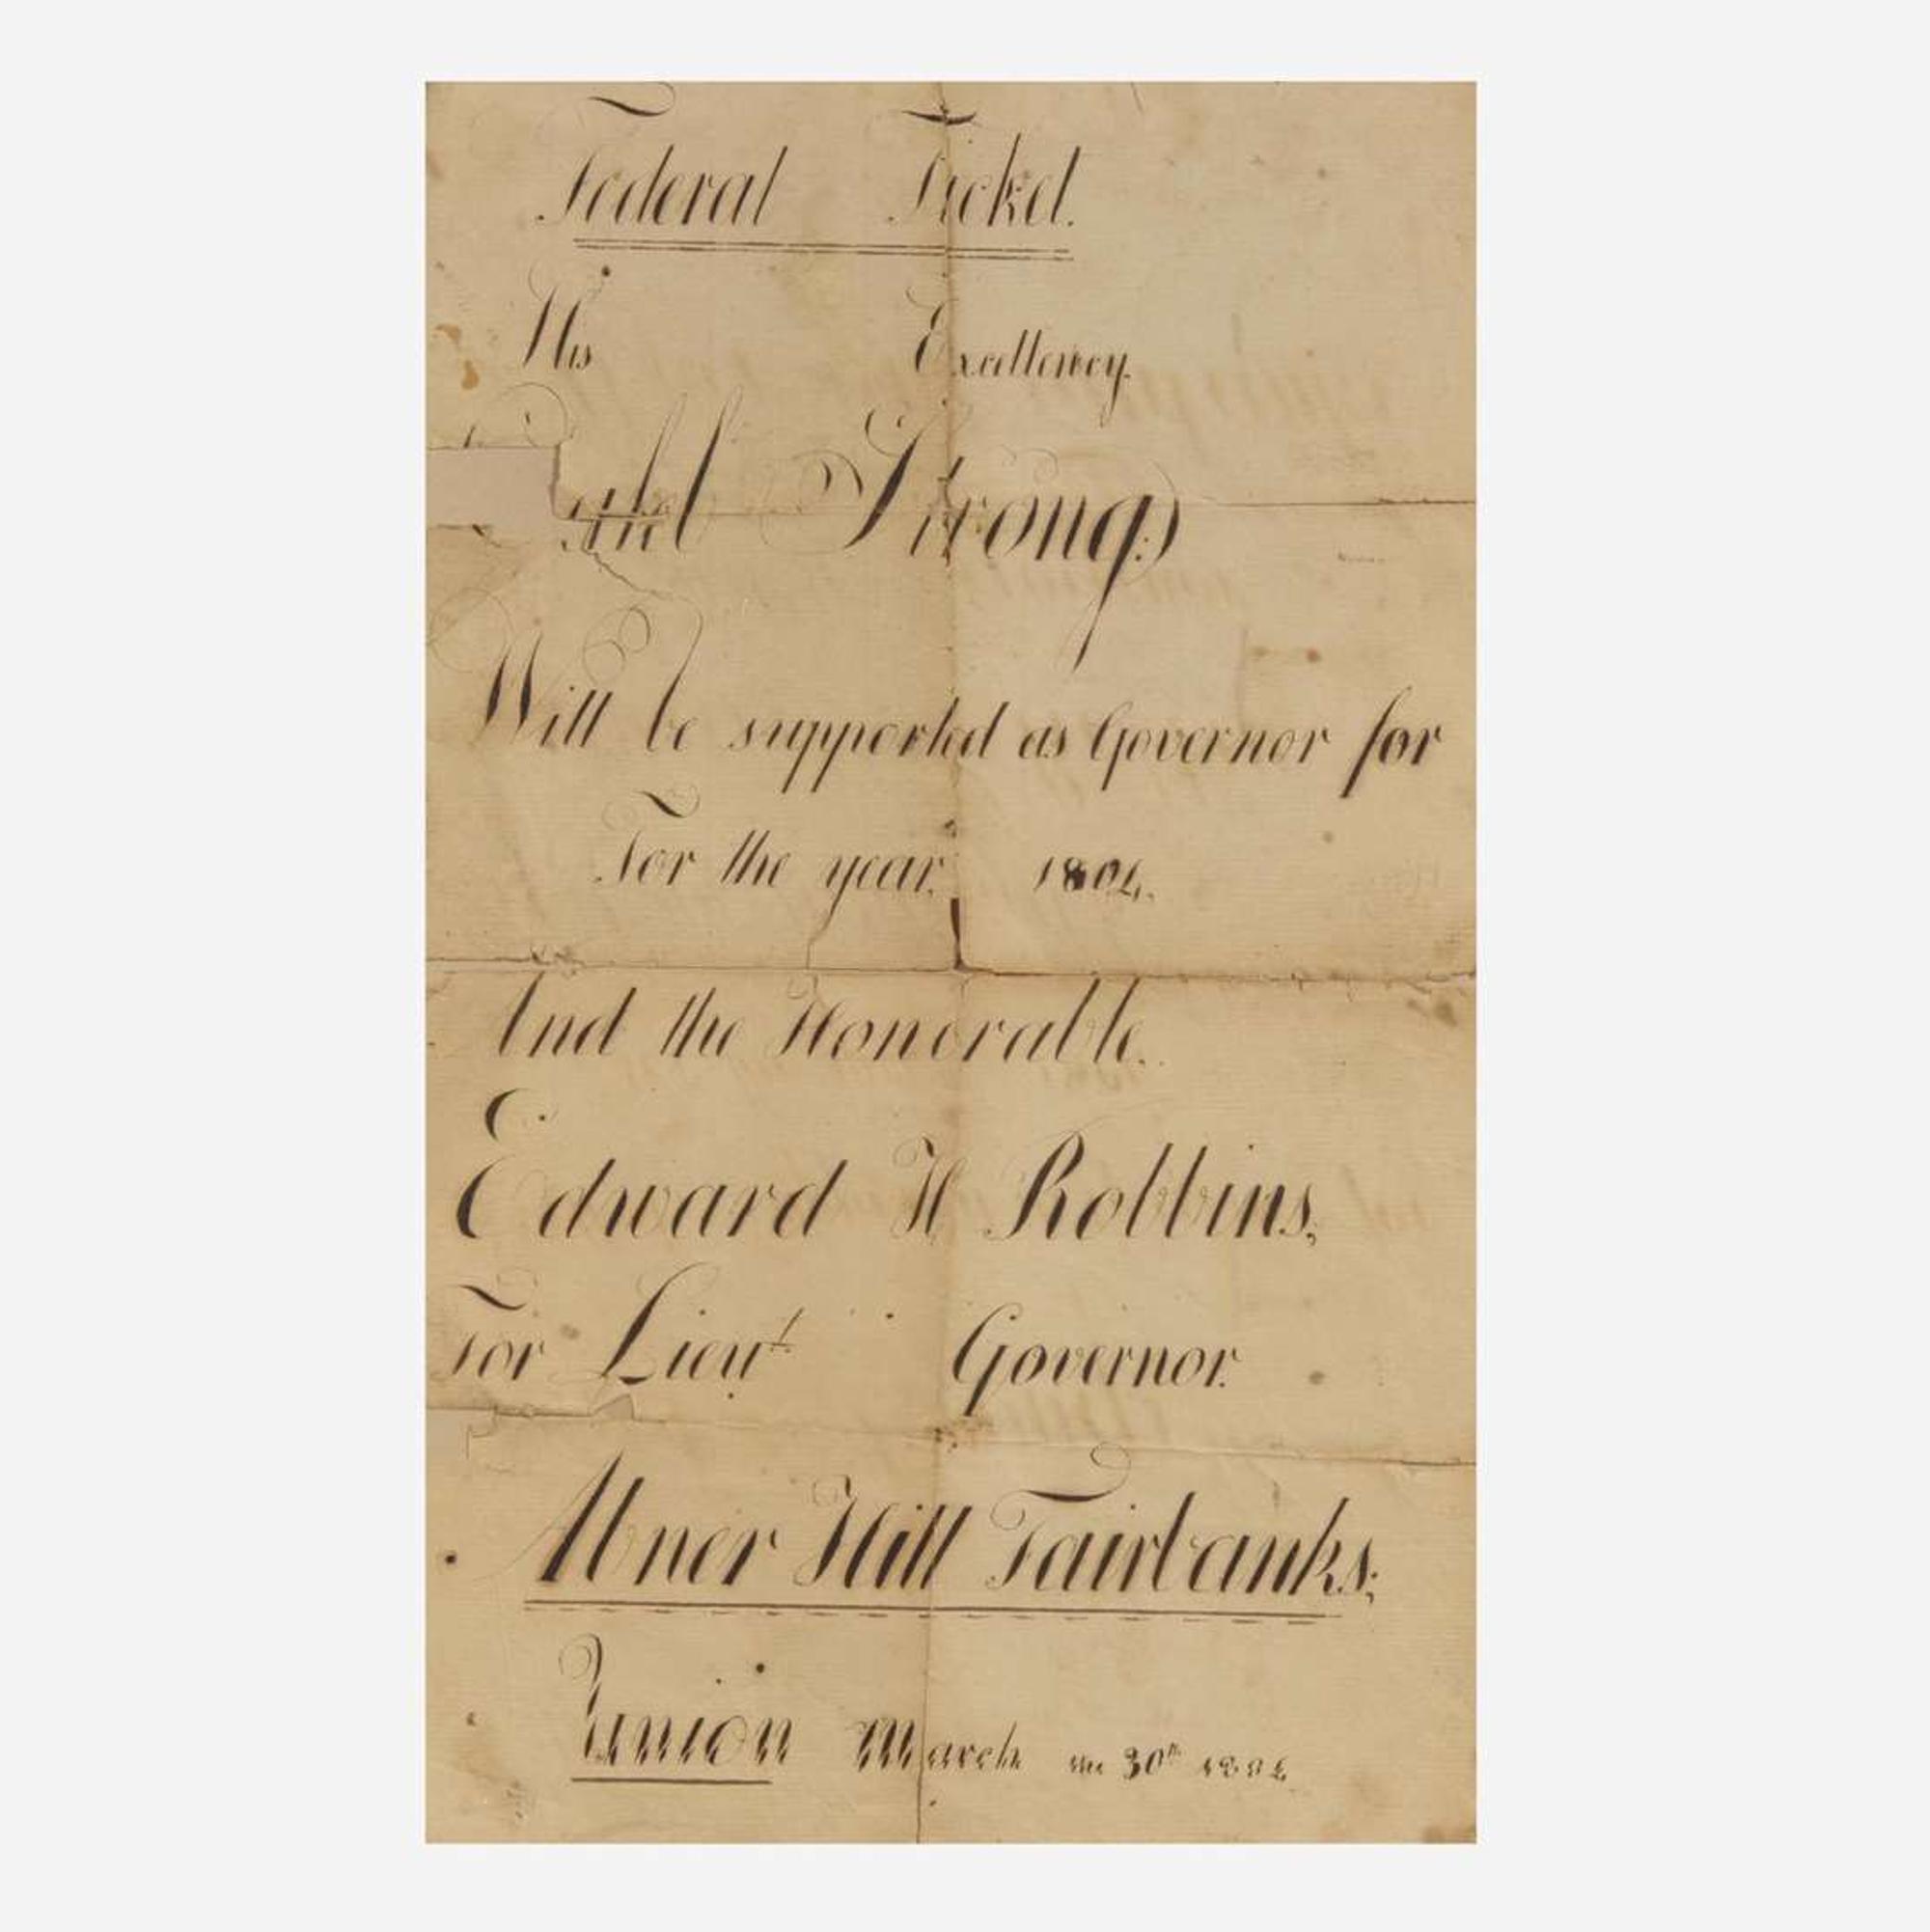 Federal Ticket.
His Excellency.
Strong
Will be supported as Governor for
For the year. 1804.
And the Honorable.
Edward H Robbins,
For Lieut Governor.
Abner Hill Fairbanks;
Union March the 30th 1804